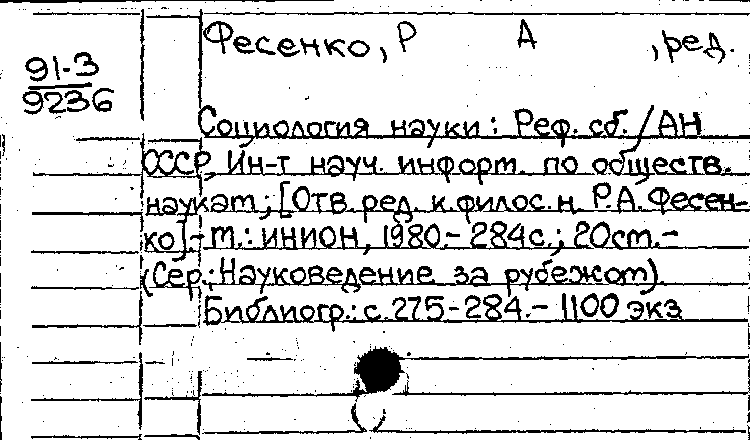 Фесенко, Р А , ред.
91-3
9236
Социология науки: Реф. сб./АН
СССР, Ин-т науч. информ. по обществ.
наукам; [Отв. ред. к. филос. н. Р.А. Фесен-
ко].-М.: ИНИОН, 1980.- 284с.; 20см.-
(Сер.: Науковедение за рубежом).
Библиогр.: с. 275-284.- 1100 экз